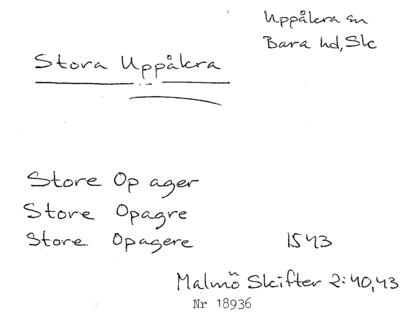 Uppåkra sn
Bara hd, Sk
Stora Uppåkra
Store Op ager
Store Opagre
Store Opagere 1543
Malmö Skifter 2:40,43
Nr 18936